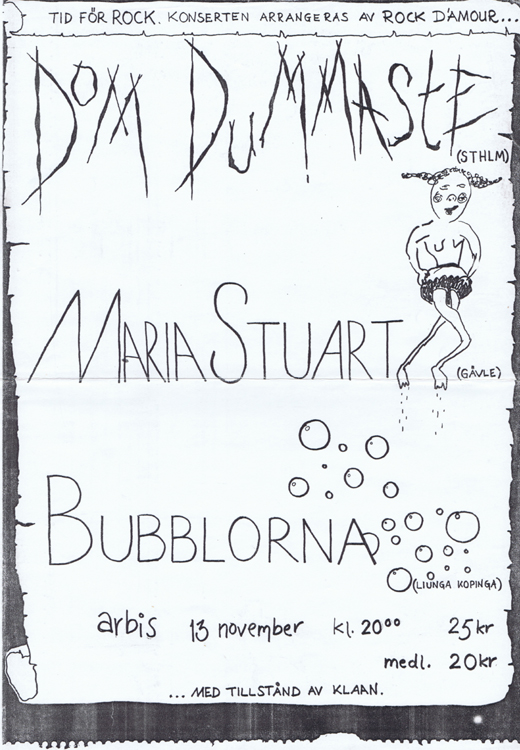 TID FÖR ROCK. KONSERTEN ARRANGERAS AV ROCK D'AMOUR...
DOM DUMMASTE
(STHLM)
MARIA STUART
(GÄVLE)
BUBBLORNA
(LIUNGA KOPINGA)
arbis 13 november kl. 20⁰⁰ 25 kr
medl. 20 kr
... MED TILLSTÅND AV KLAAN.